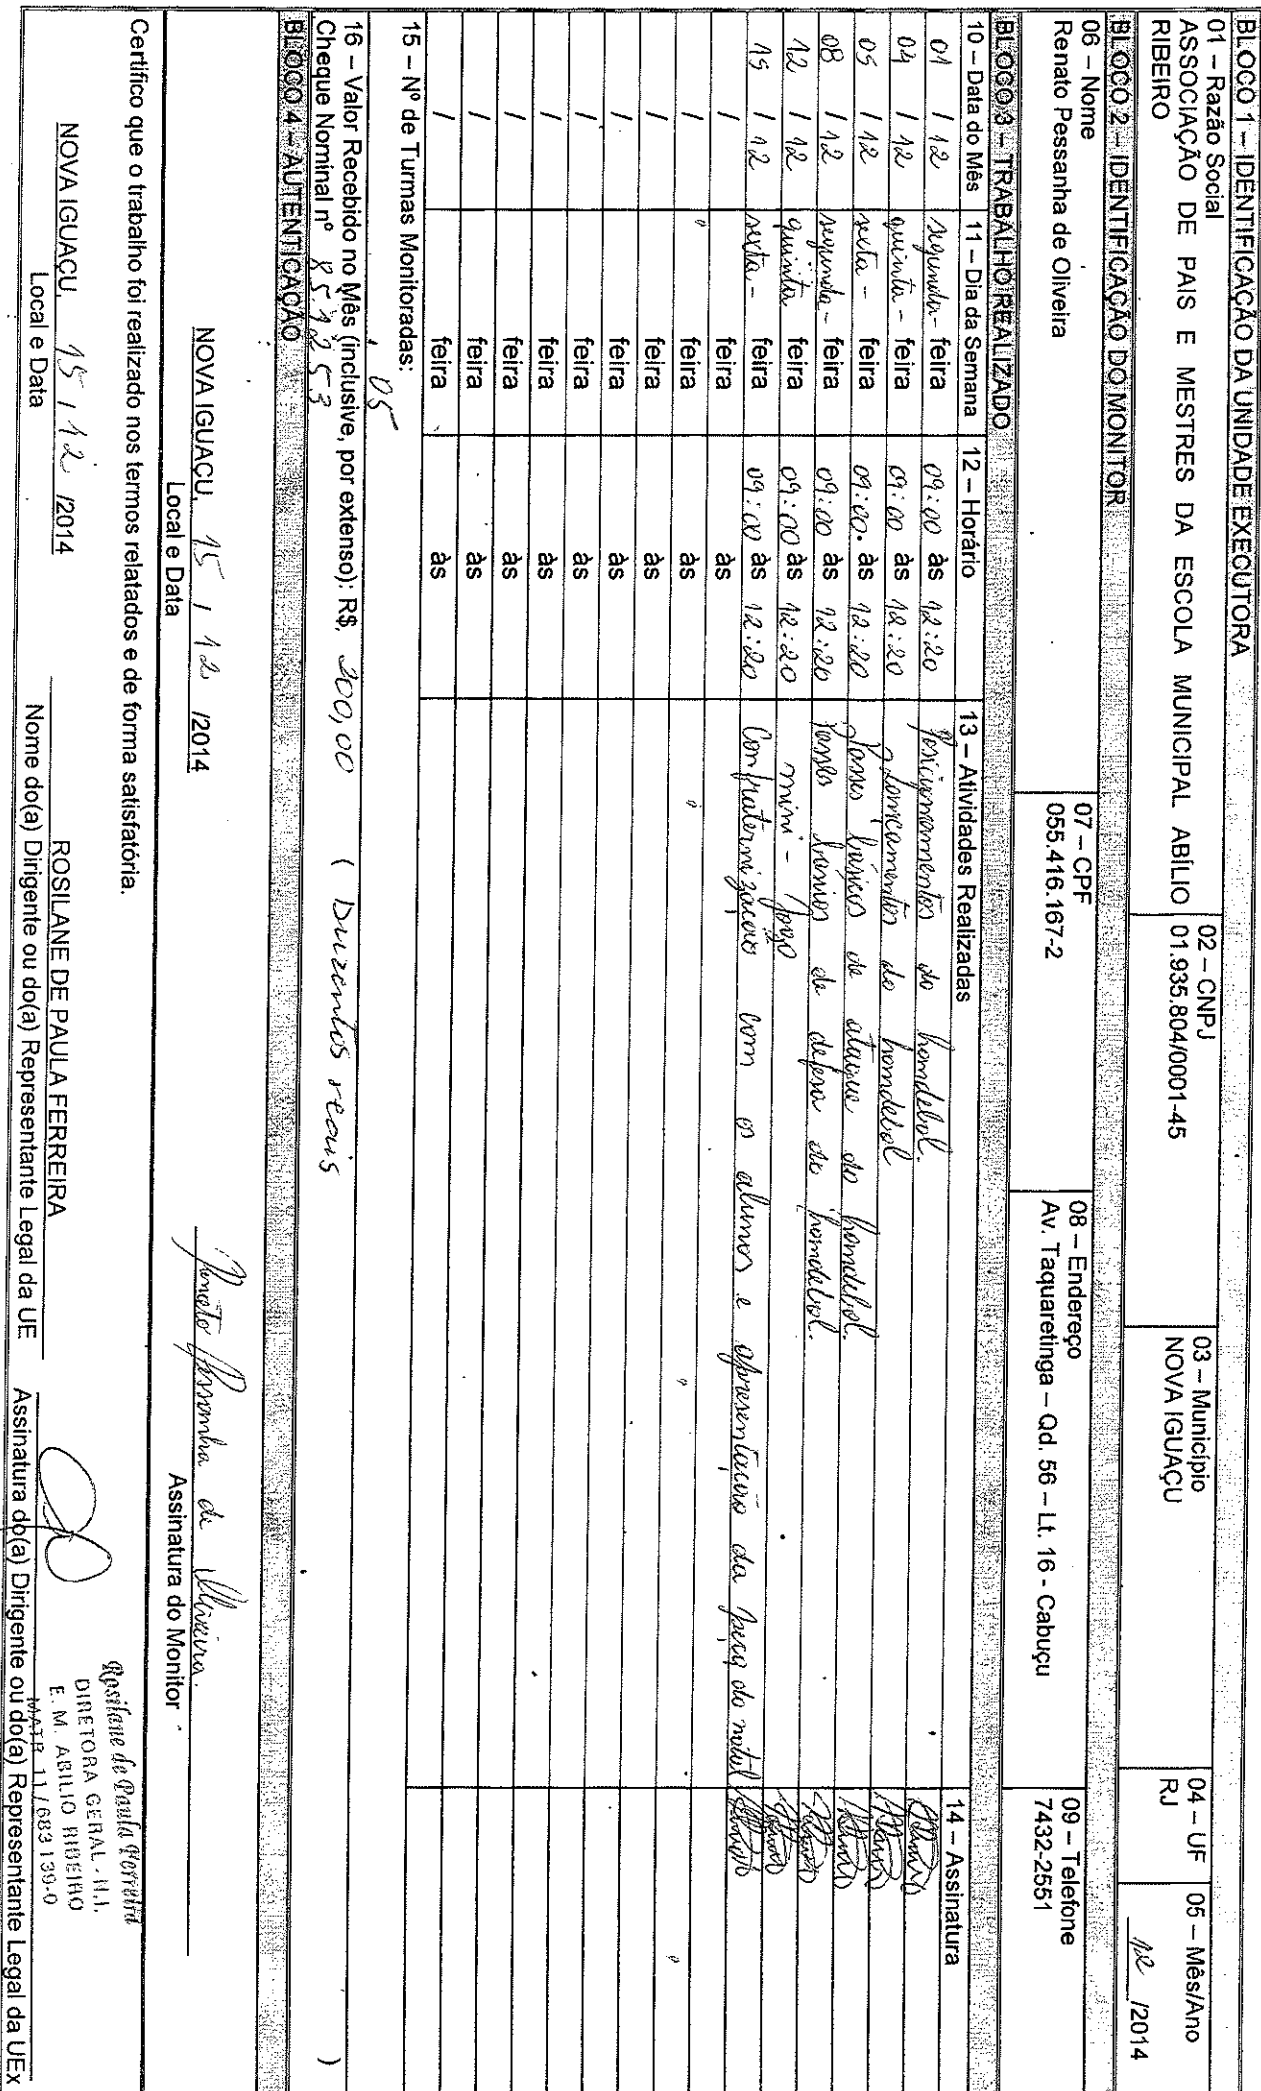 BLOCO 1 – IDENTIFICAÇÃO DA UNIDADE EXECUTORA
01 – Razão Social
ASSOCIAÇÃO DE PAIS E MESTRES DA ESCOLA MUNICIPAL ABÍLIO
RIBEIRO
02 – CNPJ
01.935.804/0001-45
03 – Município
NOVA IGUAÇU
04 – UF
RJ
05 – Mês/Ano
12 /2014
BLOCO 2 – IDENTIFICAÇÃO DO MONITOR
06 – Nome
Renato Pessanha de Oliveira
07 – CPF
055.416.167-2
08 – Endereço
Av. Taquaretinga – Qd. 56 – Lt. 16 - Cabuçu
09 – Telefone
7432-2551
BLOCO 3 – TRABALHO REALIZADO
10 – Data do Mês 11 – Dia da Semana 12 – Horário 13 – Atividades Realizadas 14 – Assinatura
01 / 12 segunda- feira 09:00 às 12:20 Posicionamentos do handebol.
04 / 12 quinta- feira 09:00 às 12:20 Lançamentos do handebol
05 / 12 sexta- feira 09:00. às 12:20 Passes básicos de ataque do handebol.
08 / 12 segunda- feira 09:00 às 12:20 Passes básicos de defesa do handebol.
12 / 12 quinta feira 09:00 às 12:20 mini-jogo
15 / 12 sexta- feira 09:00 às 12:20 Confraternização com os alunos e apresentação da peça do natal
/ feira às
/ feira às
/ feira às
/ feira às
/ feira às
/ feira às
/ feira às
/ feira às
/ feira às
15 – Nº de Turmas Monitoradas: 05
16 – Valor Recebido no Mês (inclusive, por extenso): R$. 200,00 ( Duzentos reais )
Cheque Nominal nº 851253
BLOCO 4 – AUTENTICAÇÃO
NOVA IGUAÇU, 15 / 12 /2014 Renato Pessanha de Oliveira.
Local e Data Assinatura do Monitor
Certifico que o trabalho foi realizado nos termos relatados e de forma satisfatória.
Rosilane de Paula Ferreira
DIRETORA GERAL - N.I.
E. M. ABILIO RIBEIRO
MATR 11/683139-0
NOVA IGUAÇU, 15 / 12 /2014 ROSILANE DE PAULA FERREIRA
Local e Data Nome do(a) Dirigente ou do(a) Representante Legal da UE Assinatura do(a) Dirigente ou do(a) Representante Legal da UEx